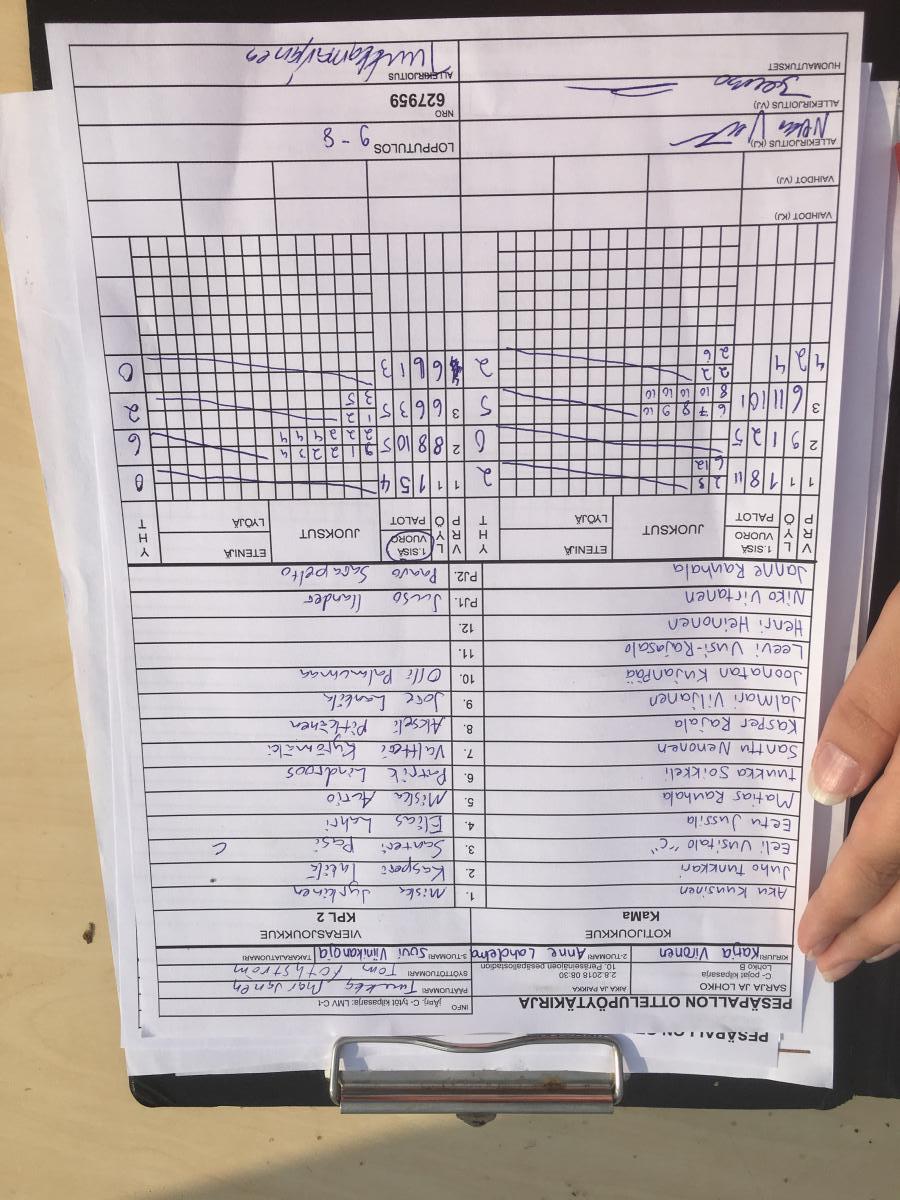 PESÄPALLON OTTELUPÖYTÄKIRJA
INFO
jÄrj. C- tytöt kilpasarja: LMV C-1
SARJA JA LOHKO
C- pojat kilpasarja
Lohko B
AIKA JA PAIKKA
2.8.2018 08:30
10. Peräseinäjoen pesäpallostadion
PÄÄTUOMARI
SYÖTTÖTUOMARI Tom
KIRJURI Katja Vironen
2-TUOMARI Anne
3-TUOMARI Suvi Viinikanoja
TAKARAJATUOMARI
KOTIJOUKKUE VIERASJOUKKUE
KaMa KPL 2
Aku Kunsinen 1. Miska Jyrkinen
Juho Tunkkari 2. Kasperi Intilä
Eeli Uusitalo "C" 3. Santeri Pasi C
Eetu Jussila 4. Elias Lahri
Matias Rauhala 5. Miska Aerio
Tuukka Soikkeli 6. Patrik Lindroos
Santtu Nenonen 7. Valtteri Kytömäki
Kasper Rajala 8. Akseli Pitkänen
Jalmari Viljanen 9. Jore Lentik
Joonatan Kujanpää 10. Olli Palmumaa
Leevi Uusi-Rajasalo 11.
Henri Heinonen 12.
Niko Virtanen PJ1. Juuso Ilander
Janne Rauhala PJ2. Paavo Sarapelto
VRP LYÖ 1.SISÄ VUORO PALOT JUOKSUT ETENIJÄ LYÖJÄ YHT VRP LYÖ 1.SISÄ VUORO PALOT JUOKSUT ETENIJÄ LYÖJÄ YHT
1 1 1 8 11 2 8 2 1 1 1 5 4 0
6 12
2 9 1 2 5 0 2 8 8 10 5 6
3 6 11 10 1 6 7 8 9 10 5 3 6 6 3 5 1 2 2
8 10 10 10 10 3 5
4 2 4 2 2 2 4 6 6 1 3 0
2 6
VAIHDOT (KJ)
VAIHDOT (VJ)
ALLEKIRJOITUS (KJ)
LOPPUTULOS 9 - 8
ALLEKIRJOITUS (VJ)
NRO
627959
HUOMAUTUKSET
ALLEKIRJOITUS